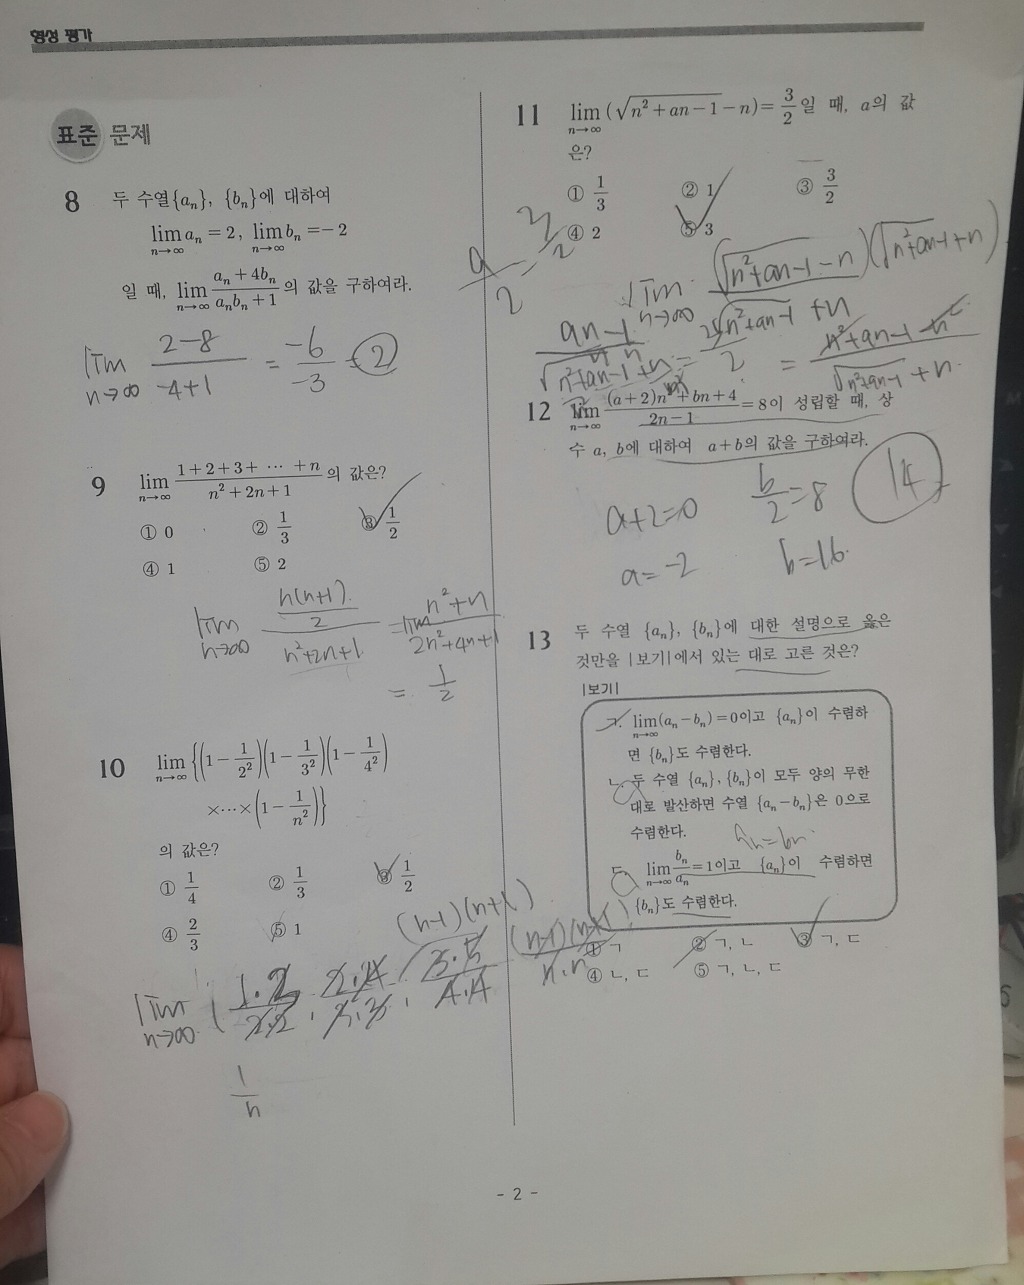 형성 평가
표준 문제
8 두 수열 {aₙ}, {bₙ}에 대하여
lim n→∞ aₙ = 2, lim n→∞ bₙ = -2
일 때, lim n→∞ (aₙ + 4bₙ)/(aₙbₙ + 1) 의 값을 구하여라.
lim n→∞ (2-8)/(-4+1) = -6/-3 = 2
9 lim n→∞ (1+2+3+ ⋯ +n)/(n² + 2n + 1) 의 값은?
① 0 ② 1/3 ③ 1/2
④ 1 ⑤ 2
lim n→∞ (n(n+1)/2)/(n²+2n+1) = lim (n²+n)/(2n²+4n+1)
= 1/2
10 lim n→∞ {(1 - 1/2²)(1 - 1/3²)(1 - 1/4²)
×⋯×(1 - 1/n²)}
의 값은?
① 1/4 ② 1/3 ③ 1/2
④ 2/3 ⑤ 1
(n-1)(n+1)
lim n→∞ ( 1·2/2·2 · 2·4/3·3 · 3·5/4·4 (n-1)(n+1)/n·n
1/n
11 lim n→∞ (√(n² + an - 1) - n) = 3/2 일 때, a의 값
은?
① 1/3 ② 1 ③ 3/2
④ 2 ⑤ 3
a/2 = 3/2
lim n→∞ (√(n²+an-1) - n)(√(n²+an-1) + n)
√(n²+an-1) + n
(an-1)/(√(n²+an-1) + n) = /2 = (n²+an-1-n²)/(√(n²+an-1) + n)
12 lim n→∞ ((a+2)n² + bn + 4)/(2n-1) = 8이 성립할 때, 상
수 a, b에 대하여 a+b의 값을 구하여라.
a+2=0 b/2=8 14
a=-2 b=16
13 두 수열 {aₙ}, {bₙ}에 대한 설명으로 옳은
것만을 |보기|에서 있는 대로 고른 것은?
|보기|
ㄱ. lim n→∞ (aₙ - bₙ) = 0이고 {aₙ}이 수렴하
면 {bₙ}도 수렴한다.
ㄴ. 두 수열 {aₙ}, {bₙ}이 모두 양의 무한
대로 발산하면 수열 {aₙ - bₙ}은 0으로
수렴한다.
aₙ=bₙ
ㄷ. lim n→∞ bₙ/aₙ = 1이고 {aₙ}이 수렴하면
{bₙ}도 수렴한다.
① ㄱ ② ㄱ, ㄴ ③ ㄱ, ㄷ
④ ㄴ, ㄷ ⑤ ㄱ, ㄴ, ㄷ
- 2 -